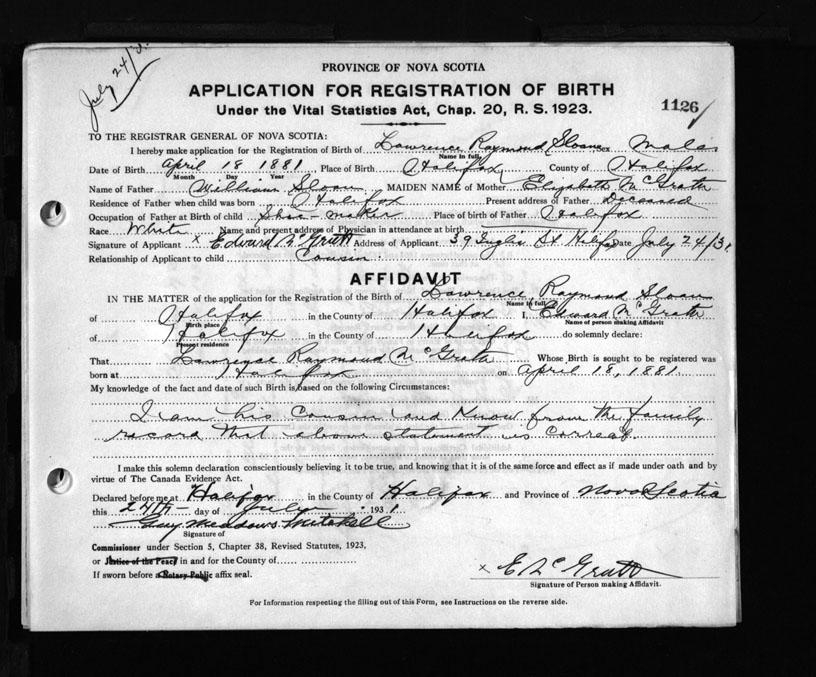 July 24/31
PROVINCE OF NOVA SCOTIA
APPLICATION FOR REGISTRATION OF BIRTH
Under the Vital Statistics Act, Chap. 20, R. S. 1923.
1126
TO THE REGISTRAR GENERAL OF NOVA SCOTIA:
I hereby make application for the Registration of Birth of Lawrence Raymond Sloan Sex Male
Name in full
Date of Birth April 18 1881 Place of Birth Halifax County of Halifax
Month Day Year
Name of Father William Sloan MAIDEN NAME of Mother Elizabeth McGrath
Residence of Father when child was born Halifax Present address of Father Deceased
Occupation of Father at Birth of child Shoe-maker Place of birth of Father Halifax
Race White Name and present address of Physician in attendance at birth
Signature of Applicant x Edward McGrath Address of Applicant 39 Inglis St Hlifax Date July 24/31
Relationship of Applicant to child Cousin
AFFIDAVIT
IN THE MATTER of the application for the Registration of the Birth of Lawrence Raymond Sloan
Name in full
of Halifax in the County of Halifax I, Edward McGrath
Birth place Name of person making Affidavit
of Halifax in the County of Halifax do solemnly declare:
Present residence
That Lawrence Raymond McGrath Whose Birth is sought to be registered was
born at Halifax on April 18, 1881
My knowledge of the fact and date of such Birth is based on the following Circumstances:
I am his Cousin and Know from the family
record that above statement is correct.
I make this solemn declaration conscientiously believing it to be true, and knowing that it is of the same force and effect as if made under oath and by
virtue of The Canada Evidence Act.
Declared before me at Halifax in the County of Halifax and Province of Nova Scotia
this 24th day of July 1931
Guy Meadows Mitchell
Signature of
Commissioner under Section 5, Chapter 38, Revised Statutes, 1923,
or Justice of the Peace in and for the County of
If sworn before a Notary Public affix seal.
x E McGrath
Signature of Person making Affidavit.
For Information respecting the filling out of this Form, see Instructions on the reverse side.